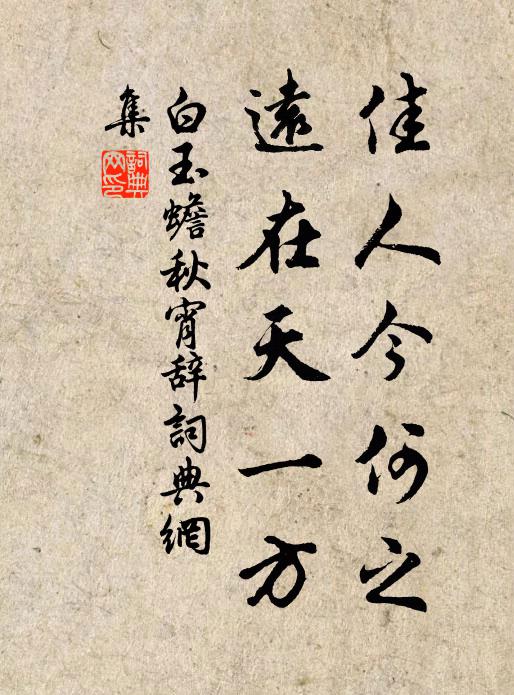 佳人今何之
遠在天一方
白玉蟾秋宵辞詞典網
集
詞典網印